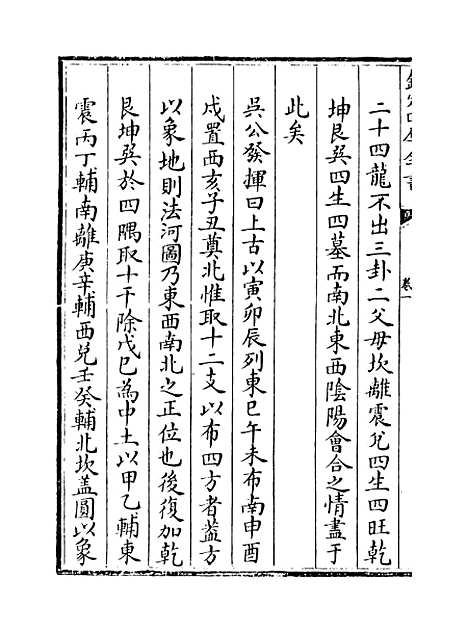 欽定四庫全書
卷一
二十四龍不出三卦二父母坎離震兌四生四旺乾
坤艮巽四生四墓而南北東西陰陽會合之情盡于
此矣
吳公發揮曰上古以寅卯辰列東巳午未布南申酉
戌置西亥子丑奠北惟取十二支以布四方者葢方
以象地則法河圖乃東西南北之正位也後復加乾
艮坤巽於四隅取十干除戊己為中土以甲乙輔東
震丙丁輔南離庚辛輔西兌壬癸輔北坎盖圓以象